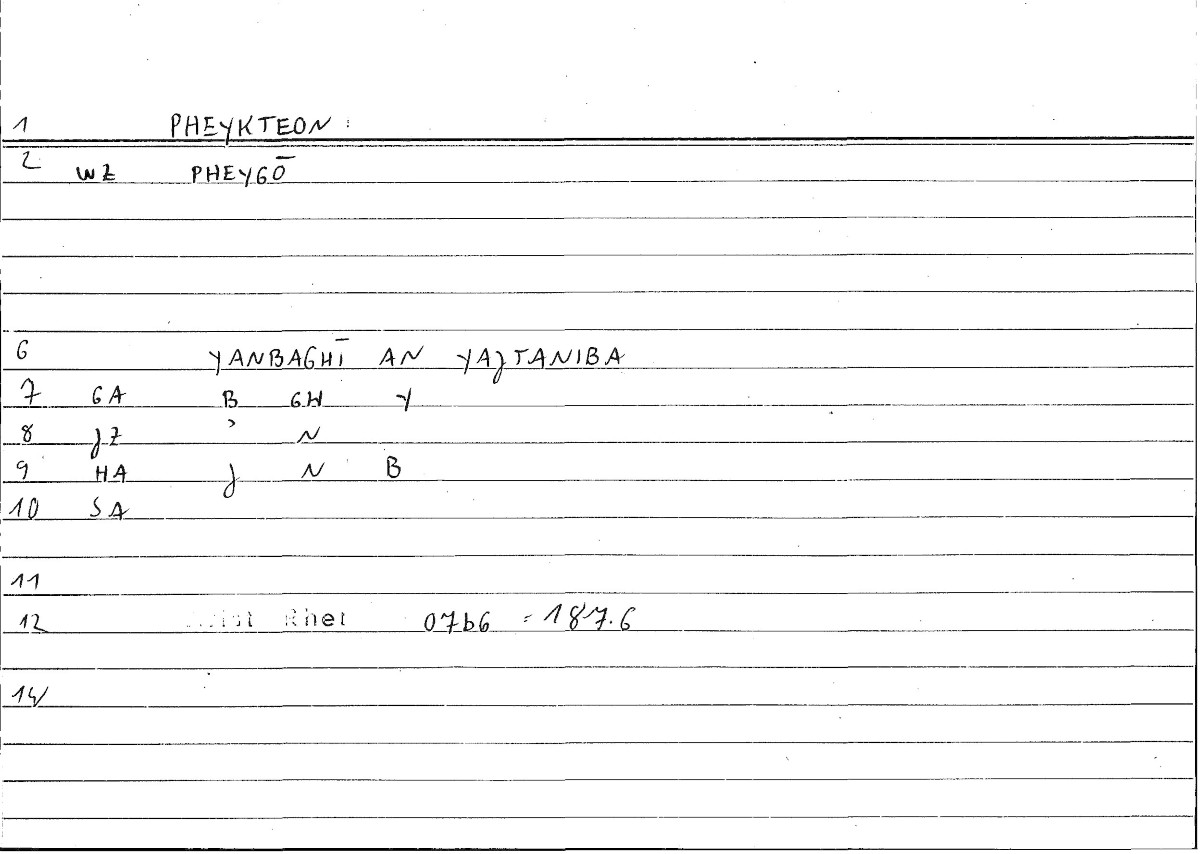 1 PHEYKTEON :
2 WZ PHEYGŌ
6 YANBAGHĪ AN YAJTANIBA
7 GA B GH Y
8 JZ ʾ N
9 HA J N B
10 SA
11
12 Rhet 07b6 = 187.6
14